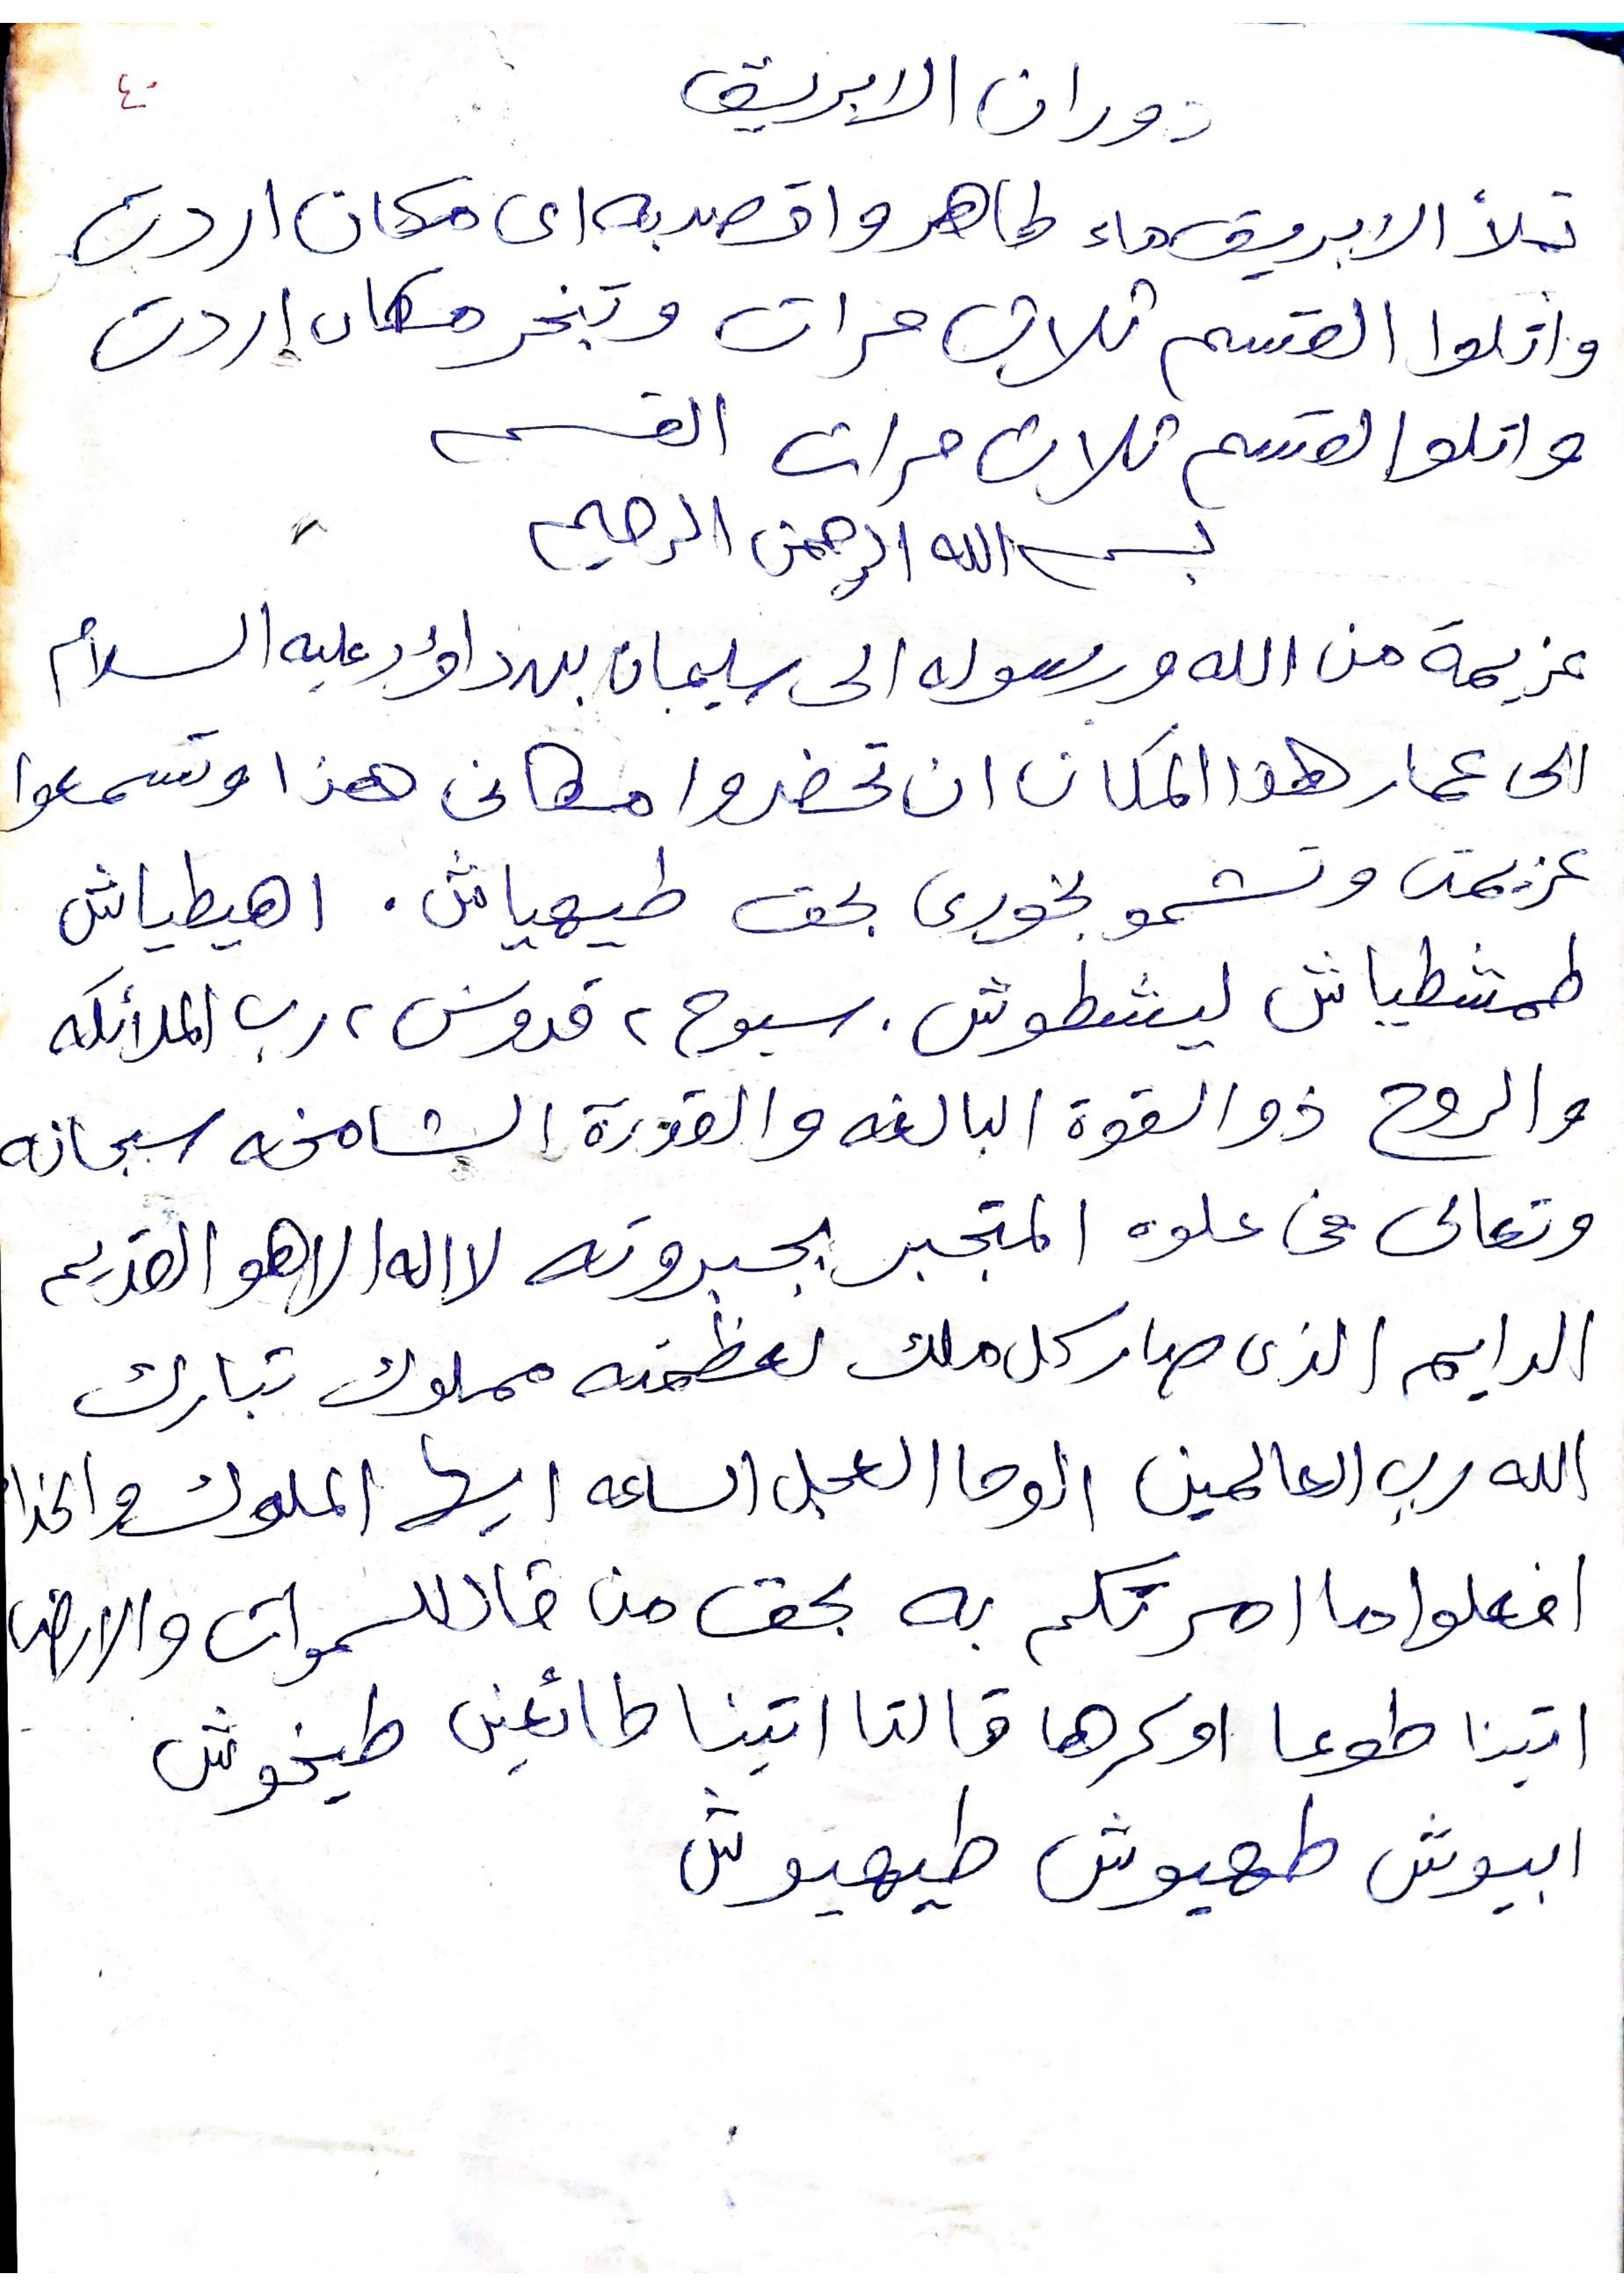 ٤٠
دوران الابريق
تملأ الابريق ماء طاهر واقصد به اى مكان اردت
واتلوا القسم ثلاث مرات وتبخر مكان اردت
واتلوا القسم ثلاث مرات القسم
بسم الله الرحمن الرحيم
عزيمة من الله ورسوله الى سليمان بن داؤد عليه السلام
الى عمار هذا المكان ان تحضروا مكانى هذا وتسمعوا
عزيمتى وتشمو بخورى بحق طيهياش . اهيطياش
طمشطياش ليشطوش . سبوح ٢ قدوس ٢ رب الملأئكه
والروح ذو القوة البالغه والقدرة الشامخه سبحانه
وتعالى فى علوه المتجبر بجبروته لا اله الا هو القديم
الدايم الذى صار كل ملك لعظمته مملوك تبارك
الله رب العالمين الوحا العجل الساعه ايها الملوك والخدا
افعلوا ما امرتكم به بحق من قال للسموات والارض
اتينا طوعا او كرها قالتا اتينا طائعين طيخوش
ابيوش طهيوش طيهيوش